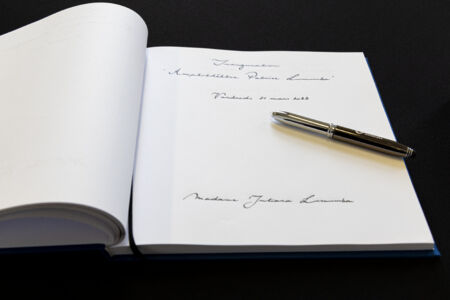 Inauguration
"Amphithéâtre Patrice Lumumba"
Vendredi mars
Madame Juliana Lumumba